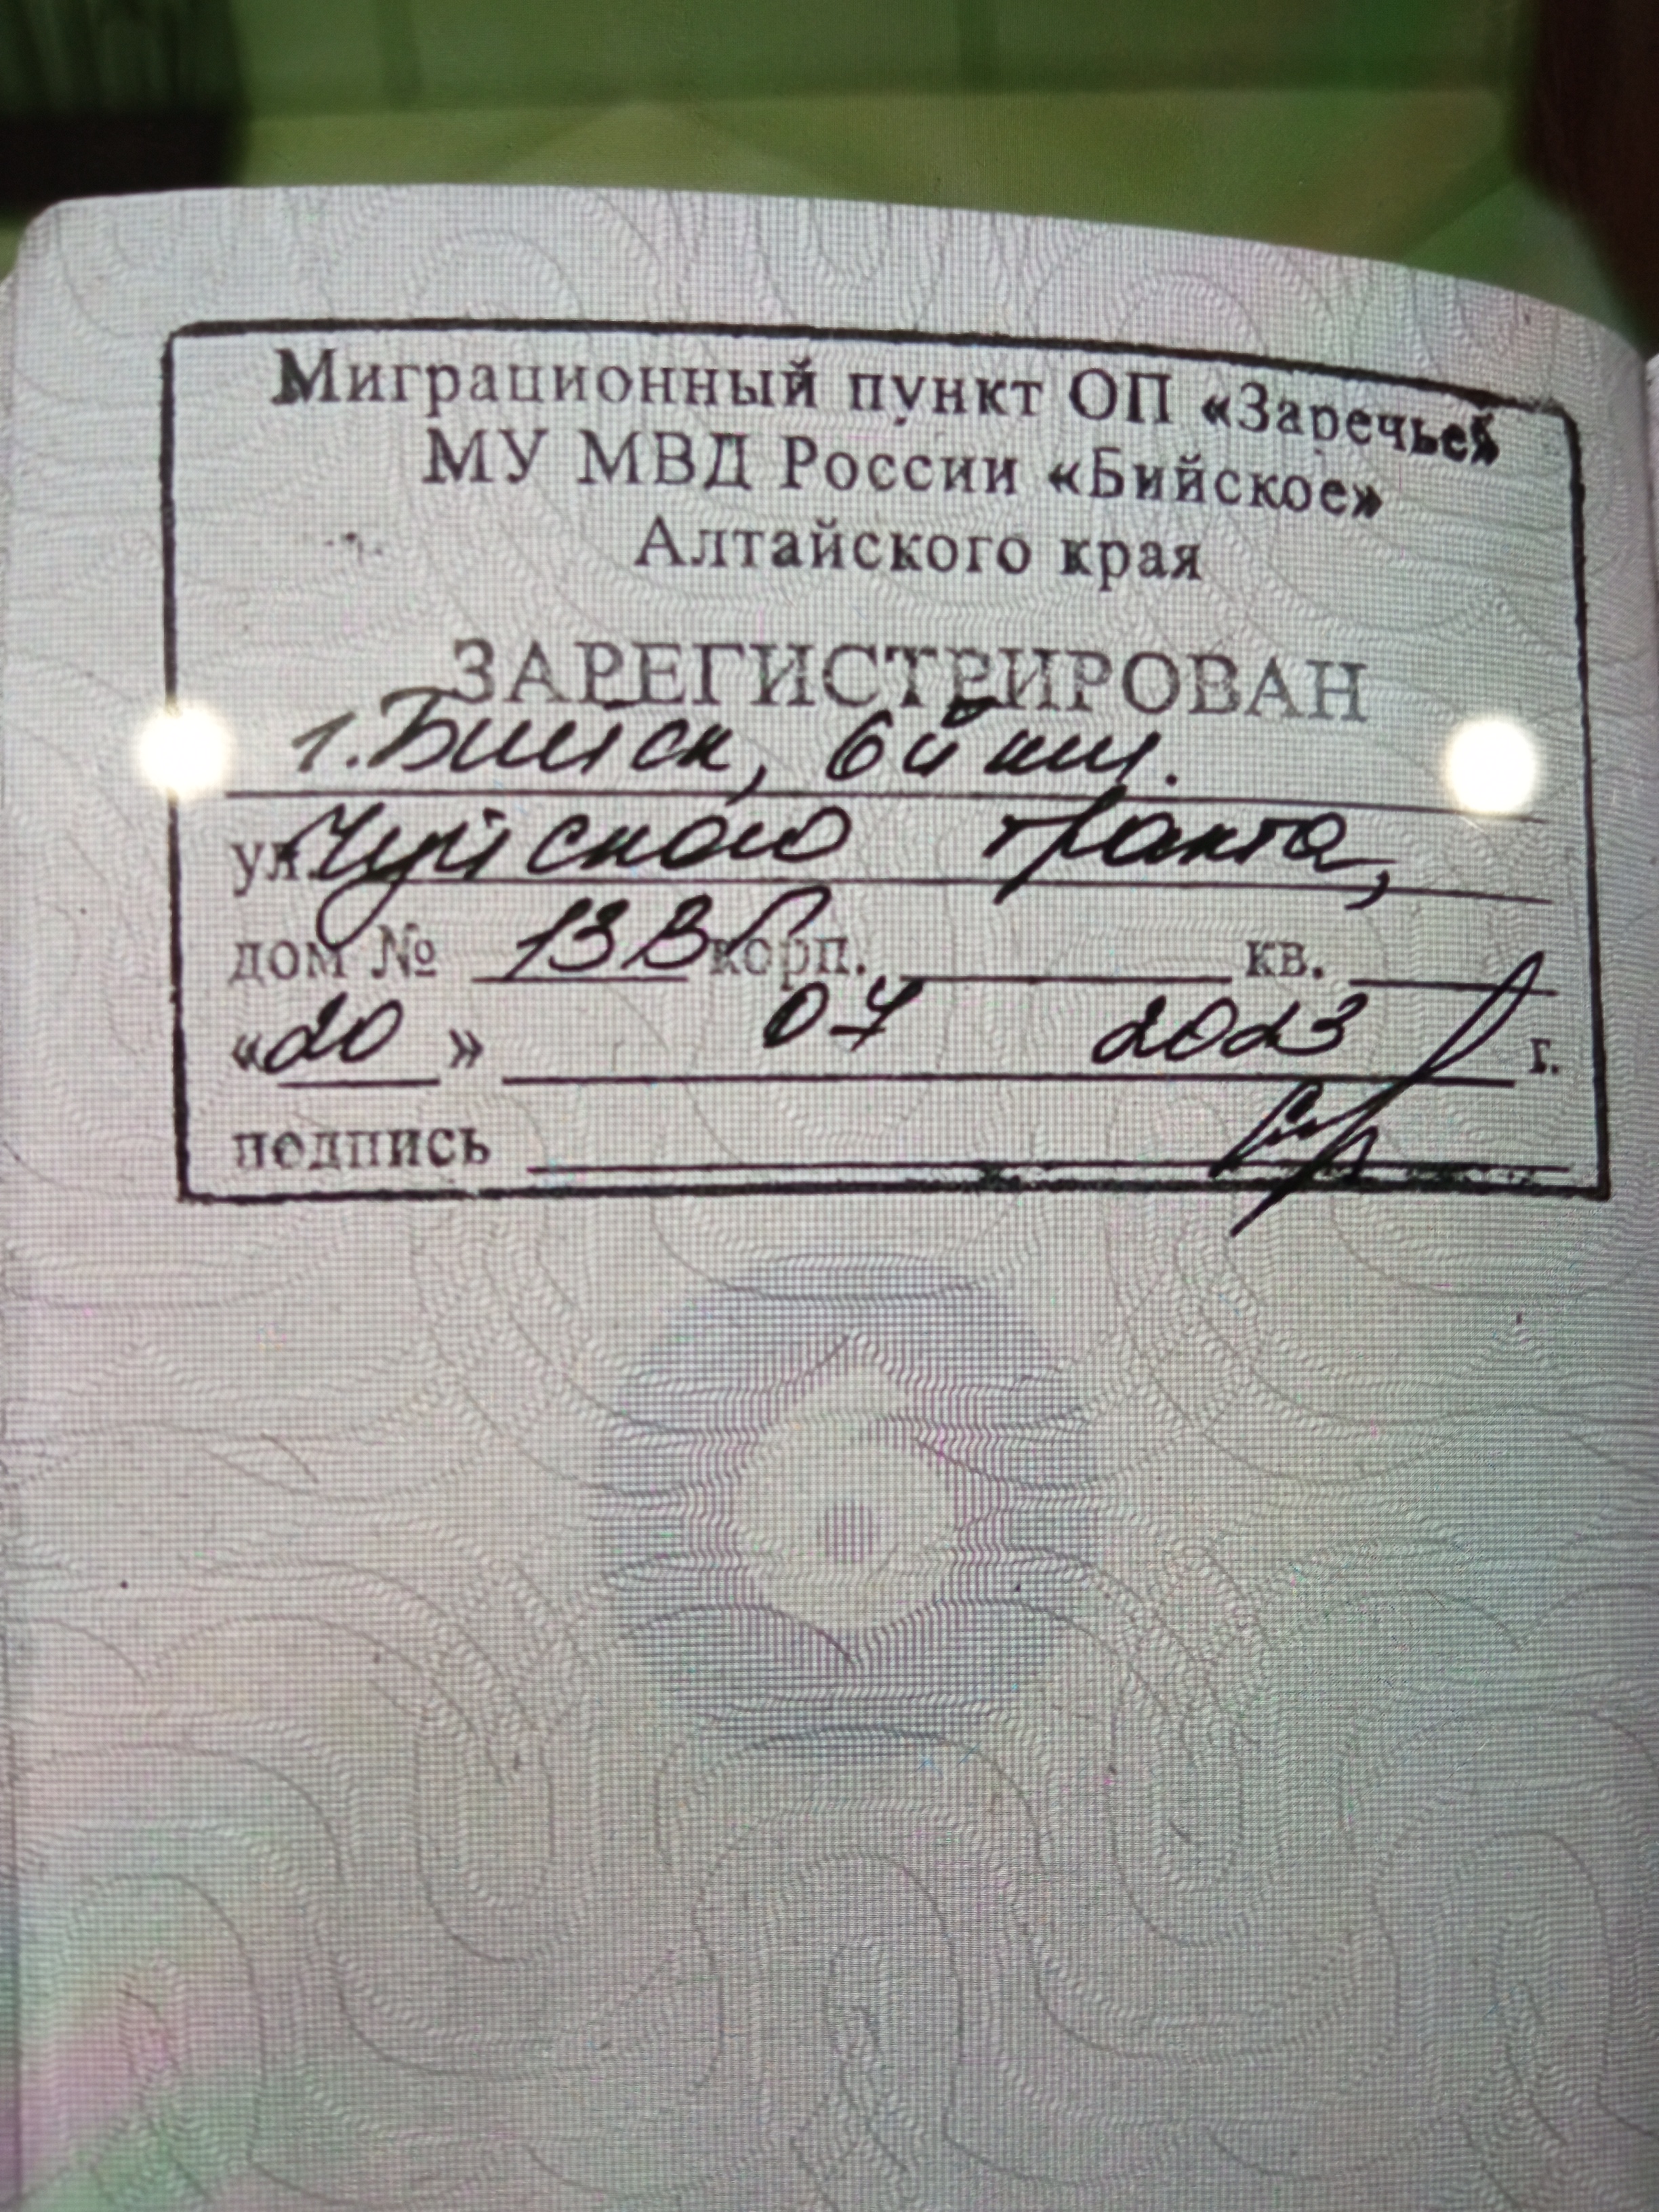 Миграционный пункт ОП «Заречье»
МУ МВД России «Бийское»
Алтайского края
ЗАРЕГИСТРИРОВАН
г. Бийск, 6й км.
ул. Чуйского тракта,
дом № 13В корп. кв.
«20» 07 2023 г.
подпись